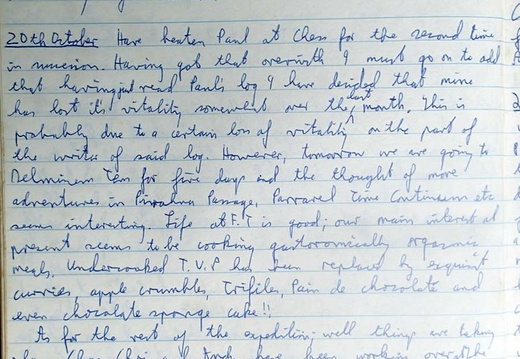 20th October Have beaten Paul at Chess for the second time
in succession. Having got that overwith I must go on to add
that having just read Paul's log I have decided that mine
has lost it's vitality somewhat over the last month. This is
probably due to a certain loss of vitality, on the part of
the writer of said log. However, tomorrow we are going to
Delminium Tens for five days and the thought of more
adventures in Piranha Passage, Parrarel Time Continuum etc
seems interesting. Life at F.T is good; our main interest at
present seems to be cooking gastoronomically orgasmic
meals, Undercooked T.V.P has been replaced by exquisit
curries, apple crumbles, Trifiles, Pain de chocolate and
even chocolate sponge cake!!
As for the rest of the expedition: well things are taking
have been working over the